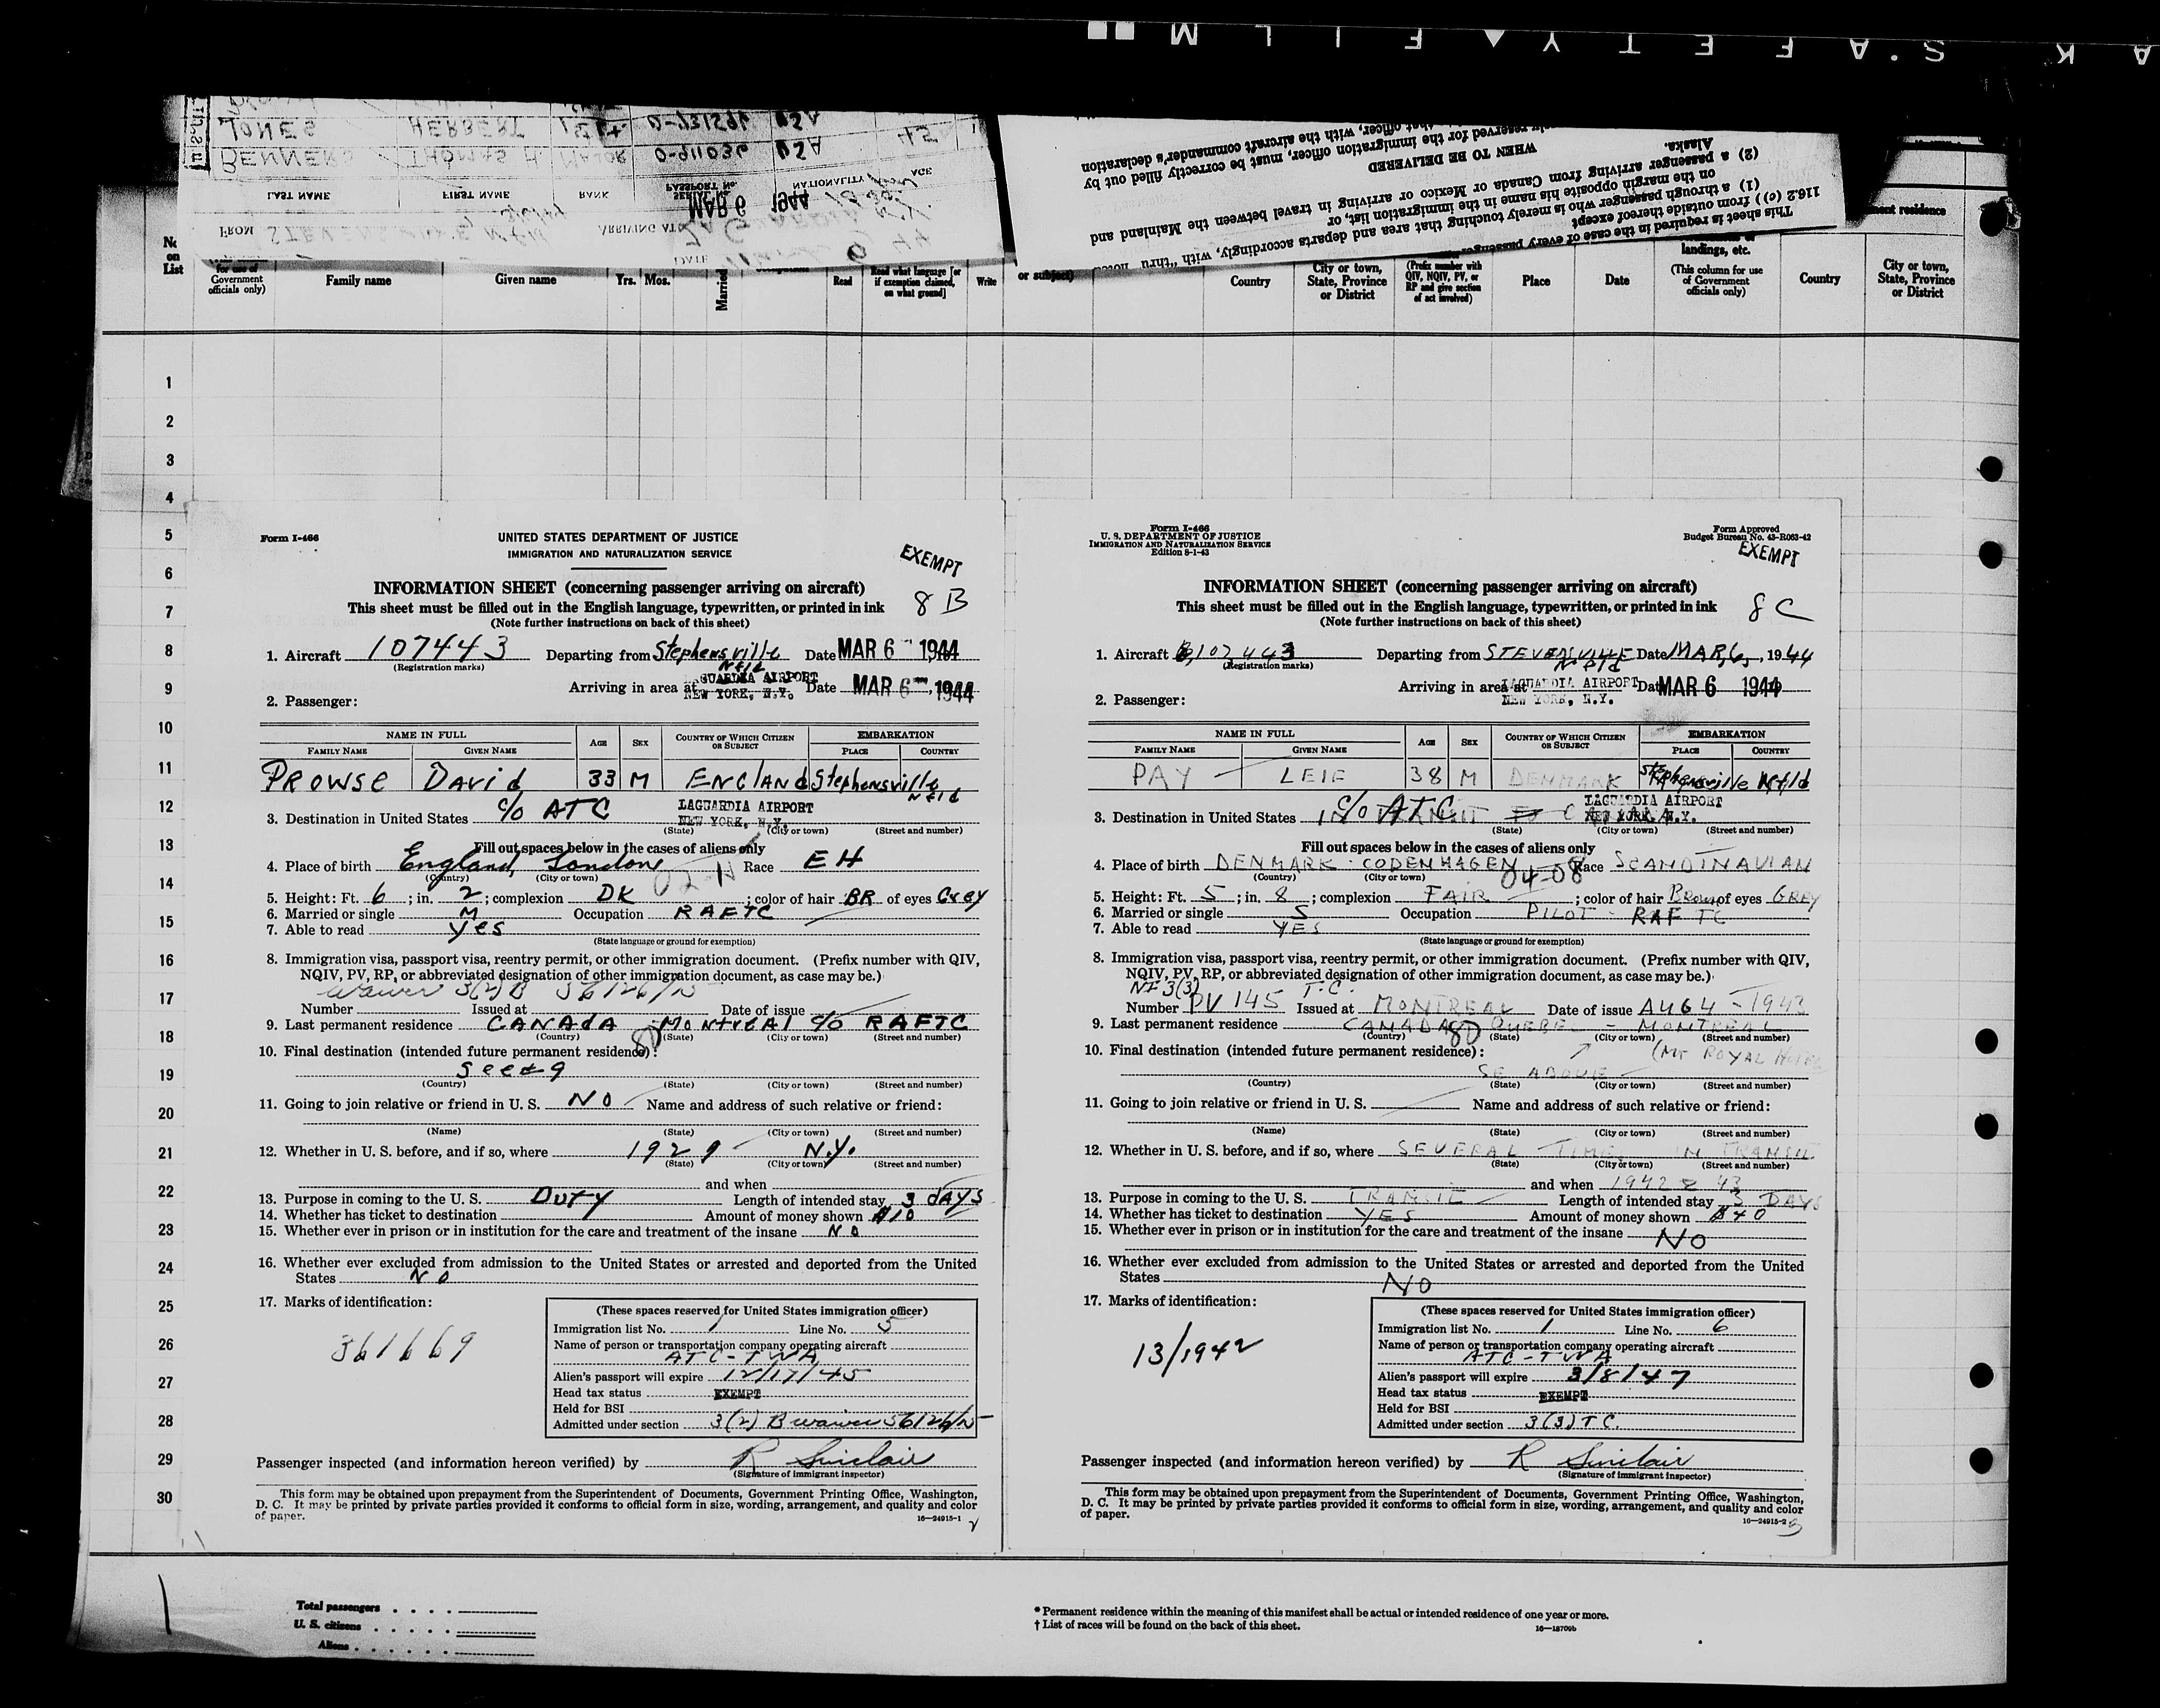 SAFETY FILM
BENNERS THOMAS H. MAJOR O-911036 USA 45
JONES HERBERT 1st Lt. O-731596 USA
LAST NAME FIRST NAME RANK SERIAL No. PASSPORT No. NATIONALITY AGE
FROM STEVENSVILLE, Nfld ARRIVING AT LaGuardia N.Y.
MAR 6 1944
DATE
This sheet is required in the case of every passenger
116.2 (c)) from outside thereof except
(1) a through passenger who is merely touching that area and departs accordingly, with "thru
on the margin opposite his name in the immigration list, or
(2) a passenger arriving from Canada or Mexico or arriving in travel between the Mainland and
Alaska.
WHEN TO BE DELIVERED
reserved for the immigration officer, must be correctly filled out by
that officer, with the aircraft commander's declaration
No.
on
List
for use of
Government
officials only)
Family name
Given name
Yrs. Mos.
Married
Read
Read what language [or
if exemption claimed,
on what ground]
Write
or subject)
Country
City or town,
State, Province
or District
(Prefix number with
QIV, NQIV, PV, or
RP and give section
of act involved)
Place
Date
landings, etc.
(This column for use
of Government
officials only)
residence
Country
City or town,
State, Province
or District
1
2
3
4
5
6
7
8
9
10
11
12
13
14
15
16
17
18
19
20
21
22
23
24
25
26
27
28
29
30
Form I-466
UNITED STATES DEPARTMENT OF JUSTICE
IMMIGRATION AND NATURALIZATION SERVICE
EXEMPT
INFORMATION SHEET (concerning passenger arriving on aircraft)
This sheet must be filled out in the English language, typewritten, or printed in ink
8 B
(Note further instructions on back of this sheet)
1. Aircraft 107443 Departing from Stephensville Nfld Date MAR 6 1944
(Registration marks)
Arriving in area at LAGUARDIA AIRPORT NEW YORK, N.Y. Date MAR 6 1944
2. Passenger:
NAME IN FULL AGE SEX COUNTRY OF WHICH CITIZEN OR SUBJECT EMBARKATION
FAMILY NAME GIVEN NAME PLACE COUNTRY
PROWSE David 33 M ENGLAND Stephensville Nfld
3. Destination in United States c/o ATC LAGUARDIA AIRPORT NEW YORK, N.Y.
(State) (City or town) (Street and number)
Fill out spaces below in the cases of aliens only
4. Place of birth England, London Race EH
(Country) (City or town)
5. Height: Ft. 6 ; in. 2 ; complexion DK ; color of hair BR of eyes Grey
6. Married or single M Occupation RAFTC
7. Able to read Yes
(State language or ground for exemption)
8. Immigration visa, passport visa, reentry permit, or other immigration document. (Prefix number with QIV,
NQIV, PV, RP, or abbreviated designation of other immigration document, as case may be.)
Waiver 3(2) B 56126/N
Number Issued at Date of issue
9. Last permanent residence CANADA Montreal c/o RAFTC
(Country) (State) (City or town) (Street and number)
10. Final destination (intended future permanent residence):
See #9
(Country) (State) (City or town) (Street and number)
11. Going to join relative or friend in U. S. NO Name and address of such relative or friend:
(Name) (State) (City or town) (Street and number)
12. Whether in U. S. before, and if so, where 1929 N.Y.
(State) (City or town) (Street and number)
and when
13. Purpose in coming to the U. S. Duty Length of intended stay 3 days
14. Whether has ticket to destination Amount of money shown $10
15. Whether ever in prison or in institution for the care and treatment of the insane No
16. Whether ever excluded from admission to the United States or arrested and deported from the United
States No
17. Marks of identification:
361669
(These spaces reserved for United States immigration officer)
Immigration list No. 1 Line No. 5
Name of person or transportation company operating aircraft
ATC-TWA
Alien's passport will expire 12/17/45
Head tax status EXEMPT
Held for BSI
Admitted under section 3(2) B waiver 56126/N
Passenger inspected (and information hereon verified) by R Sinclair
(Signature of immigrant inspector)
This form may be obtained upon prepayment from the Superintendent of Documents, Government Printing Office, Washington,
D. C. It may be printed by private parties provided it conforms to official form in size, wording, arrangement, and quality and color
of paper.
16—24915-1
Form I-466
U. S. DEPARTMENT OF JUSTICE
IMMIGRATION AND NATURALIZATION SERVICE
Edition 8-1-43
Form Approved
Budget Bureau No. 43-R063-42
EXEMPT
INFORMATION SHEET (concerning passenger arriving on aircraft)
This sheet must be filled out in the English language, typewritten, or printed in ink
8 C
(Note further instructions on back of this sheet)
1. Aircraft 107443 Departing from STEVENSVILLE Nfld Date MAR, 6, 1944
(Registration marks)
Arriving in area at LAGUARDIA AIRPORT NEW YORK, N.Y. Date MAR 6 1944
2. Passenger:
NAME IN FULL AGE SEX COUNTRY OF WHICH CITIZEN OR SUBJECT EMBARKATION
FAMILY NAME GIVEN NAME PLACE COUNTRY
PAY LEIF 38 M DENMARK Stephensville Nfld
3. Destination in United States c/o ATC LAGUARDIA AIRPORT NEW YORK, N.Y.
(State) (City or town) (Street and number)
Fill out spaces below in the cases of aliens only
4. Place of birth DENMARK · COPENHAGEN Race SCANDINAVIAN
(Country) (City or town) 04-08
5. Height: Ft. 5 ; in. 8 ; complexion FAIR ; color of hair Brown of eyes GREY
6. Married or single S Occupation PILOT - RAF TC
7. Able to read YES
(State language or ground for exemption)
8. Immigration visa, passport visa, reentry permit, or other immigration document. (Prefix number with QIV,
NQIV, PV, RP, or abbreviated designation of other immigration document, as case may be.)
NF 3(3) T.C.
Number PV 145 Issued at MONTREAL Date of issue AUG 4 - 1943
9. Last permanent residence CANADA QUEBEC - MONTREAL
(Country) (State) (City or town) (Street and number)
10. Final destination (intended future permanent residence): (MT ROYAL HOTEL
SE ABOVE
(Country) (State) (City or town) (Street and number)
11. Going to join relative or friend in U. S. Name and address of such relative or friend:
(Name) (State) (City or town) (Street and number)
12. Whether in U. S. before, and if so, where SEVERAL TIMES IN TRANSIT
(State) (City or town) (Street and number)
and when 1942 & 43
13. Purpose in coming to the U. S. TRANSIT Length of intended stay 3 DAYS
14. Whether has ticket to destination YES Amount of money shown $40
15. Whether ever in prison or in institution for the care and treatment of the insane NO
16. Whether ever excluded from admission to the United States or arrested and deported from the United
States NO
17. Marks of identification:
13/1942
(These spaces reserved for United States immigration officer)
Immigration list No. 1 Line No. 6
Name of person or transportation company operating aircraft
ATC-TWA
Alien's passport will expire 3/8/47
Head tax status EXEMPT
Held for BSI
Admitted under section 3(3) TC.
Passenger inspected (and information hereon verified) by R Sinclair
(Signature of immigrant inspector)
This form may be obtained upon prepayment from the Superintendent of Documents, Government Printing Office, Washington,
D. C. It may be printed by private parties provided it conforms to official form in size, wording, arrangement, and quality and color
of paper.
16—24915-2
Total passengers
U. S. citizens
Aliens
* Permanent residence within the meaning of this manifest shall be actual or intended residence of one year or more.
† List of races will be found on the back of this sheet.
16—18709b